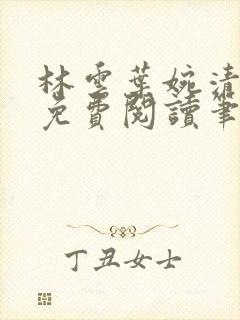 林雲葉婉清
免費閱讀筆
丁丑女士